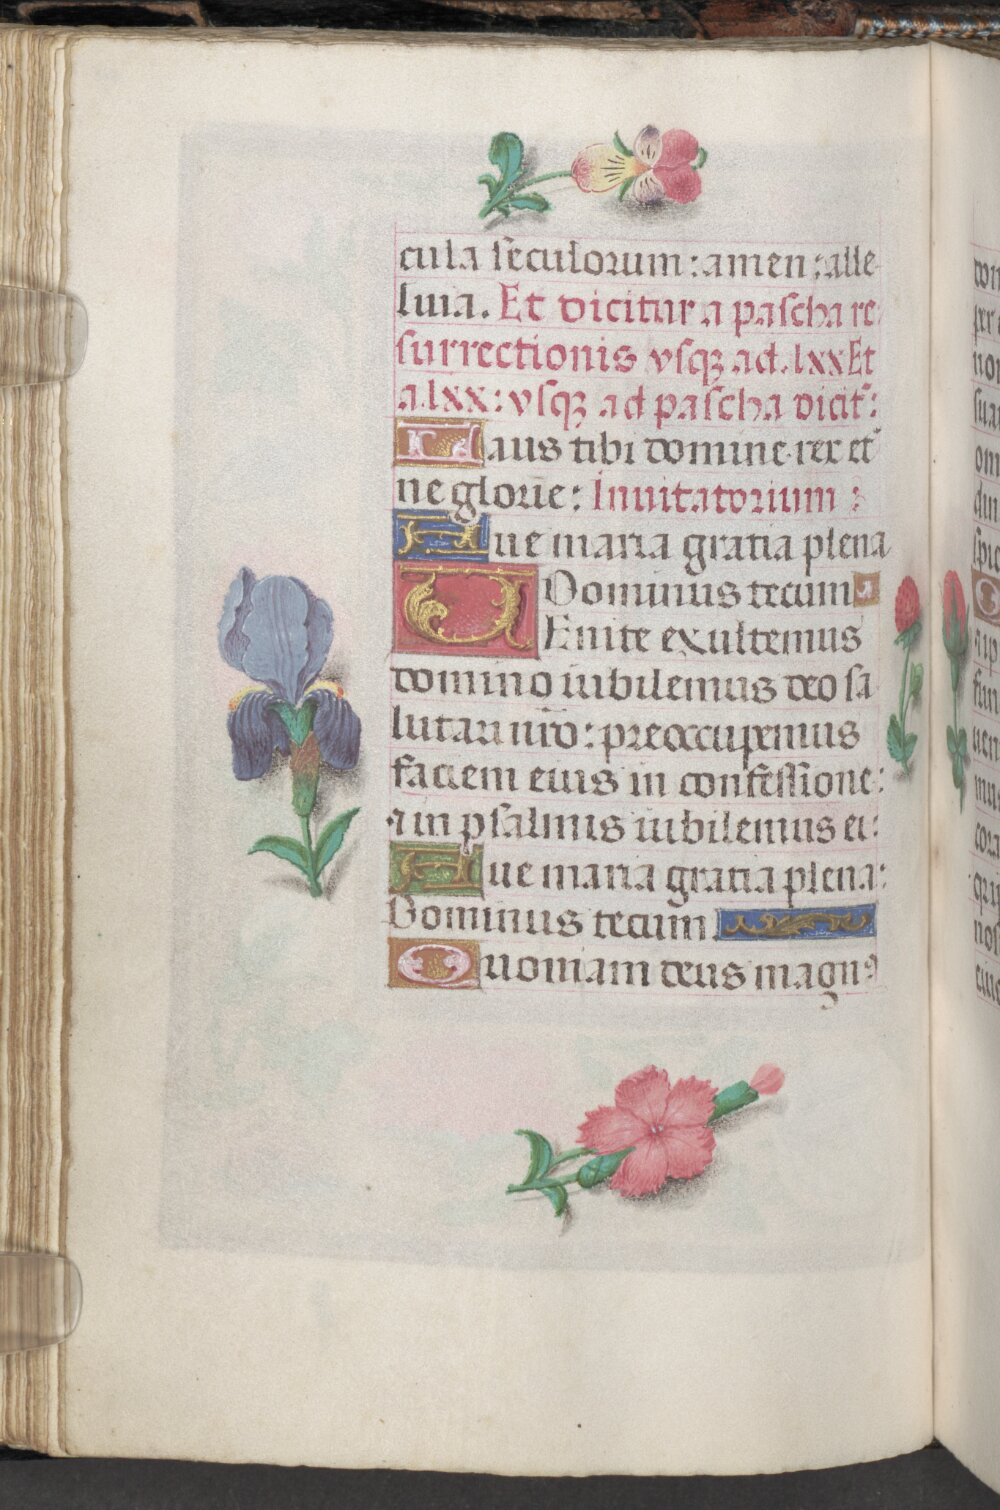 cula seculorum : amen : alle
luia. Et dicitur a pascha re
surrectionis vsqꝫ ad. lxx Et
a lxx : vsqꝫ ad pascha dicit᷑ :
Laus tibi domine rex et
ne glorie : Inuitatorium :
Aue maria gratia plena
Dominus tecum
VEnite exultemus
domino iubilemus deo sa
lutari nr̄o : preoccupemus
faciem eius in confessione :
⁊ in psalmis iubilemus ei :
Aue maria gratia plena :
Dominus tecum
Quoniam deus magnꝰ